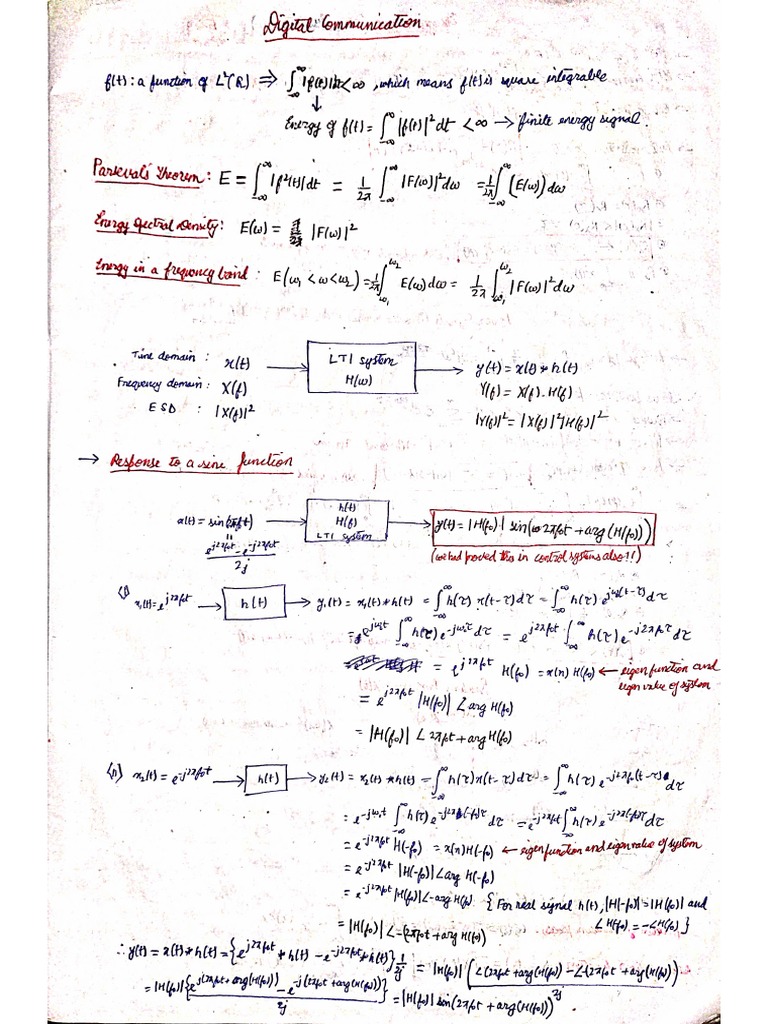 Digital Communication
f(t): a function of L²(R) ⇒ ∫_{-∞}^{∞} |f(t)|²dt < ∞, which means f(t) is square integrable
↓
Energy of f(t) = ∫_{-∞}^{∞} |f(t)|² dt < ∞ → finite energy signal.
Parseval's Theorem: E = ∫_{-∞}^{∞} |f²(t)| dt = 1/2π ∫_{-∞}^{∞} |F(ω)|² dω = 1/2π ∫_{-∞}^{∞} (E(ω)) dω
Energy Spectral Density: E(ω) = |F(ω)|²
Energy in a frequency band: E(ω₁ < ω < ω₂) = 1/2π ∫_{ω₁}^{ω₂} E(ω) dω = 1/2π ∫_{ω₁}^{ω₂} |F(ω)|² dω
Time domain: x(t) → LTI system H(ω) → y(t) = x(t) * h(t)
Frequency domain: X(f) Y(f) = X(f). H(f)
ESD: |X(f)|² |Y(f)|² = |X(f)|² |H(f)|²
→ Response to a sine function
x(t) = sin(2πf₀t) → h(t) H(f) LTI system → y(t) = |H(f₀)| sin(2πf₀t + arg(H(f₀)))
= (e^{j2πf₀t} - e^{-j2πf₀t})/2j (we had proved this in control systems also!!)
(i) x₁(t) = e^{j2πf₀t} → h(t) → y₁(t) = x₁(t) * h(t) = ∫_{-∞}^{∞} h(τ) x(t-τ) dτ = ∫_{-∞}^{∞} h(τ) e^{jω₀(t-τ)} dτ
= e^{jω₀t} ∫_{-∞}^{∞} h(τ) e^{-jω₀τ} dτ = e^{j2πf₀t} ∫_{-∞}^{∞} h(τ) e^{-j2πf₀τ} dτ
= e^{j2πf₀t} H(f₀) = x(n) H(f₀) ← eigen function and
eigen value of system
= e^{j2πf₀t} |H(f₀)| ∠arg H(f₀)
= |H(f₀)| ∠2πf₀t + arg H(f₀)
(ii) x₂(t) = e^{-j2πf₀t} → h(t) → y₂(t) = x₂(t) * h(t) = ∫_{-∞}^{∞} h(τ) x(t-τ) dτ = ∫_{-∞}^{∞} h(τ) e^{-j2πf₀(t-τ)} dτ
= e^{-jω₀t} ∫_{-∞}^{∞} h(τ) e^{-j2π(-f₀)τ} dτ = e^{-j2πf₀t} ∫_{-∞}^{∞} h(τ) e^{-j2π(-f₀)τ} dτ
= e^{-j2πf₀t} H(-f₀) = x(n) H(-f₀) ← eigen function and eigen value of system
= e^{-j2πf₀t} |H(-f₀)| ∠arg H(-f₀)
= e^{-j2πf₀t} |H(f₀)| ∠-arg H(f₀) { For real signal h(t), |H(-f₀)| = |H(f₀)| and
∠H(f₀) = -∠H(f₀) }
= |H(f₀)| ∠-(2πf₀t + arg H(f₀))
∴ y(t) = x(t) * h(t) = {e^{j2πf₀t} * h(t) - e^{-j2πf₀t} * h(t)} 1/2j = |H(f₀)| (∠(2πf₀t + arg(H(f₀)) - ∠-(2πf₀t + arg(H(f₀)))/2j
= |H(f₀)| {e^{j(2πf₀t + arg(H(f₀)))} - e^{-j(2πf₀t + arg(H(f₀)))}}/2j = |H(f₀)| sin(2πf₀t + arg(H(f₀)))